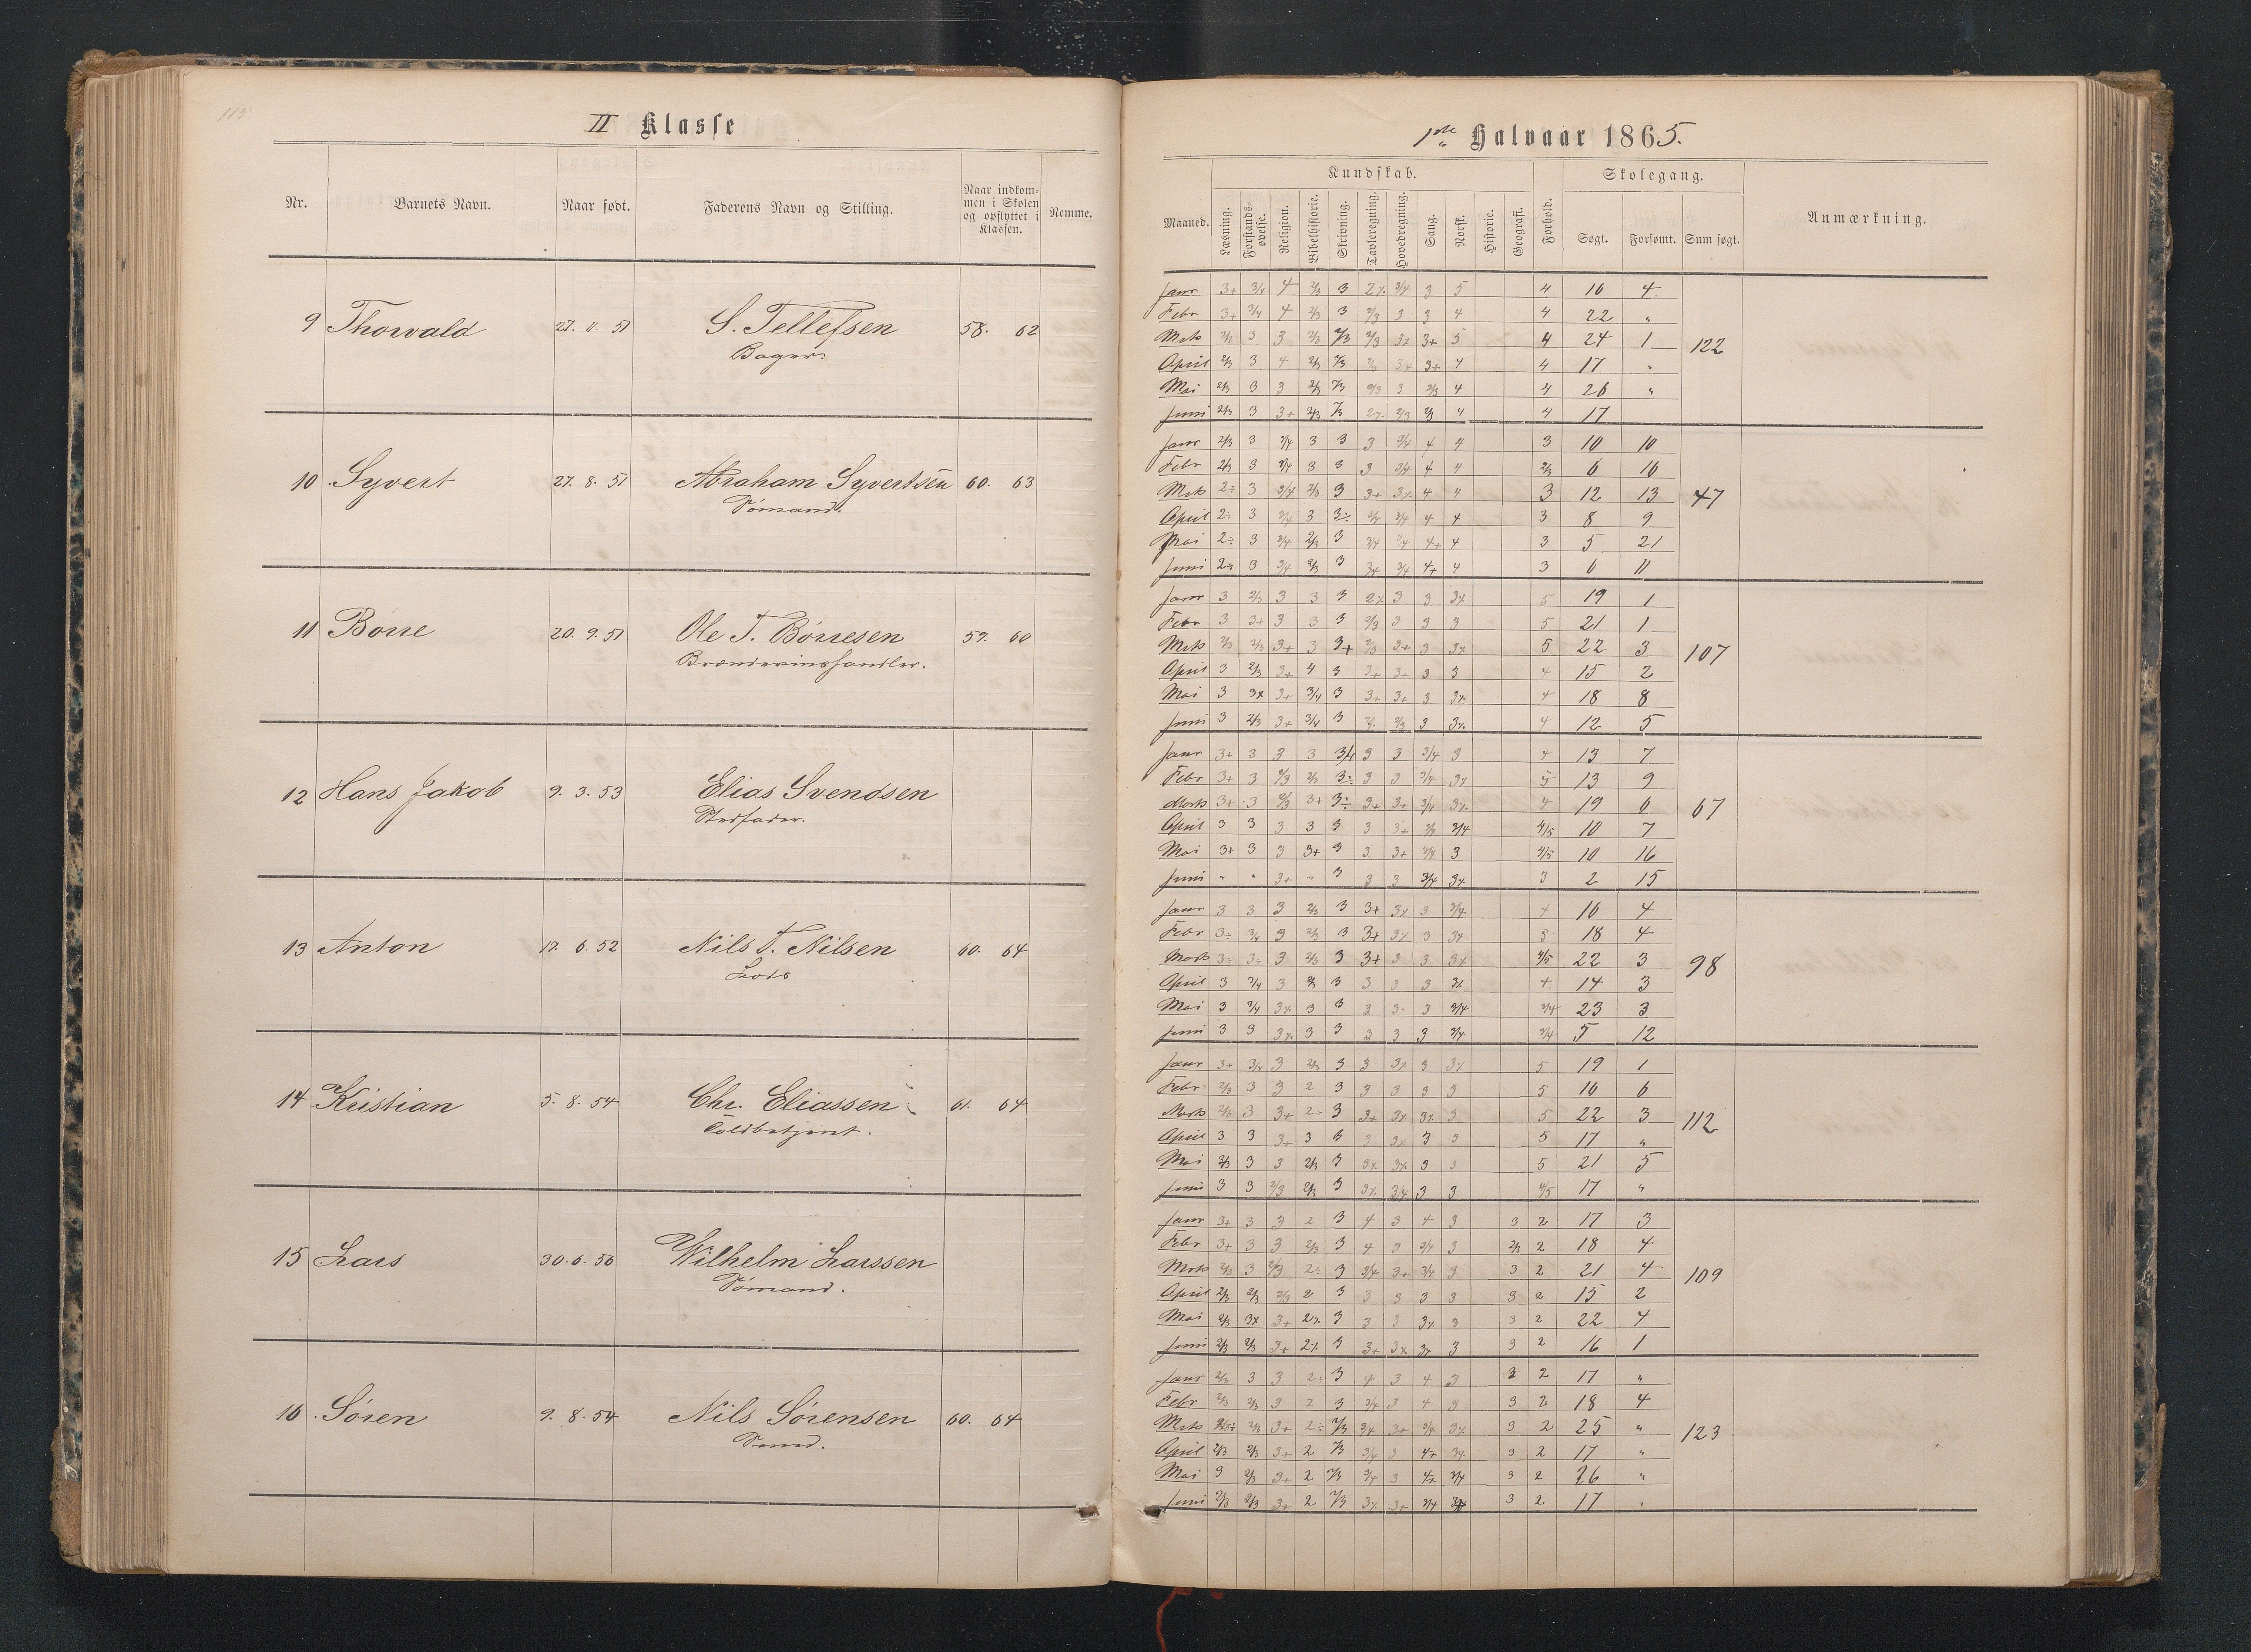 115.
II Klasse
Nr. Barnets Navn. Naar født. Faderens Navn og Stilling. Naar indkommen i Skolen og opflyttet i Klassen. Nemme.
9 Thorvald 27. 11. 51 S. Tellefsen 58. 62
Bager.
10 Syvert 27. 8. 51 Abraham Syvertsen 60. 63
Sømand.
11 Børre 20. 9. 51 Ole T. Børresen 59. 60
Brændevinshandler.
12 Hans Jakob 9. 3. 53 Elias Svendsen
Stedfader.
13 Anton 17. 6. 52 Nils T. Nilsen 60. 64
Lods
14 Kristian 5. 8. 54 Chr. Eliassen 61. 64
Toldbetjent.
15 Lars 30. 6. 56 Wilhelm Larssen
Sømand.
16 Søren 9. 8. 54 Nils Sørensen 60. 64
Smd.
1ste Halvaar 1865.
Kundskab. Skolegang.
Maaned. Læsning. Forstandsøvelse. Religion. Bibelhistorie. Skrivning. Tavleregning. Hovedregning. Sang. Norsk. Historie. Geografi. Forhold. Søgt. Forsømt. Sum søgt. Anmærkning.
Janr 3+ 3/4 4 2/3 3 2% 3/4 3 5 4 16 4
Febr 3+ 3/4 4 2/3 3 2/3 3 3 4 4 22 "
Mrts 2/3 3 3 2/3 2/3 2/3 3+ 5 4 24 1 122
April 2/3 3 4 2/3 2/3 3+ 4 4 17 "
Mai 2/3 3 3 2/3 2/3 2/3 3 2/3 4 4 26 "
Juni 2/3 3 3+ 2/3 2/3 2% 2/3 2/3 4 4 17
Janr 2/3 3 3/4 3 3 3 3/4 4 4 3 10 10
Febr 2/3 3 3/4 3 3 3 3/4 4 4 2/3 6 16
Mrts 2÷ 3 3/4 2/3 3 3+ 3% 4 4 3 12 13 47
April 2÷ 3 3/4 3 3÷ 3/4 3/4 4 4 3 8 9
Mai 2÷ 3 3/4 2/3 3 3/4 3/4 4+ 4 3 5 21
Juni 2÷ 3 3/4 2/3 3 3+ 3/4 4+ 4 3 6 11
Janr 3 2/3 3 3 3 2% 3 3 3% 5 19 1
Febr 3 3+ 3 3 3 2/3 3 3 3 5 21 1
Mrts 2/3 2/3 3+ 3 3+ 2/3 3+ 3 3% 5 22 3 107
April 3 2/3 3+ 4 3 3+ 3+ 3 3 4 15 2
Mai 3 3% 3+ 3/4 3 3+ 3+ 3 3% 4 18 8
Juni 3 2/3 3+ 3/4 3 2/3 3 3% 4 12 5
Janr 3+ 3 3 3 3/4 3 3 3/4 3 4 13 7
Febr 3+ 3 2/3 2/3 3÷ 3 3 3/4 3% 5 13 9
Marts 3+ 3 2/3 3+ 3÷ 3+ 3+ 3/4 3% 4 19 6 67
April 3 3 3 3 3 3 3+ 3/4 4/5 10 7
Mai 3+ 3 3 3+ 3 3 3+ 3/4 3 4/5 10 16
Juni " " 3+ " 3 3 3 3/4 3% 3 2 15
Janr 3 3 3 2/3 3 3+ 3% 3 3/4 4 16 4
Febr 3÷ 3/4 3 2/3 3 3+ 3% 3 3% 3 18 4
Marts 3÷ 3÷ 3 2/3 3 3+ 3 3 3% 4/5 22 3 98
April 3 3/4 3 2/3 3 3 3 3 3% 4 14 3
Mai 3 3/4 3% 3 3 3 3 3 3/4 3/4 23 3
Juni 3 3 3% 3 3 3 3 3 3/4 3/4 5 12
Janr 3+ 3/4 3 2/3 3 3 3% 3 3% 5 19 1
Febr 2/3 3 3 2 3 3 3 3 3 5 16 6
Marts 2/3 3 3+ 2÷ 3 3+ 3% 3% 3 5 22 3 112
April 3 3 3+ 3 3 3 3% 3 3 5 17 "
Mai 2/3 3 3 2/3 3 3% 3% 3 3 5 21 5
Juni 3 3 2/3 2/3 3 3% 3/4 3 3 4/5 17 "
Janr 3+ 3 3 2 3 4 3 4 3 3 2 17 3
Febr 3+ 3 3 2/3 3 4 3 3/4 3 2/3 2 18 4
Mrts 2/3 3 2/3 2÷ 3 3/4 3+ 3/4 3 3 2 21 4 109
April 2/3 2/3 2/3 2 3 3 3 3 3 3 2 15 2
Mai 2/3 3% 3+ 2% 3 3 3 3% 3 3 2 22 4
Juni 2/3 2/3 3+ 2% 3 3+ 3% 3% 3 3 2 16 1
Janr 2/3 3 3 2÷ 3 4 3 4 3 3 2 17 "
Febr 2/3 2/3 3 2 3 3/4 3 4 3 3 2 18 4
Mrts 2/3 3+ 2÷ 2/3 3/4 3+ 3/4 3% 3 2 25 " 123
April 2/3 2/3 3+ 2 2/3 3/4 3 4+ 3% 3 2 17 "
Mai 3 2/3 3+ 2 2/3 3/4 3 4+ 3/4 3 2 26 "
Juni 2/3 2/3 3+ 2 2/3 3% 3+ 3/4 3 2 17 "